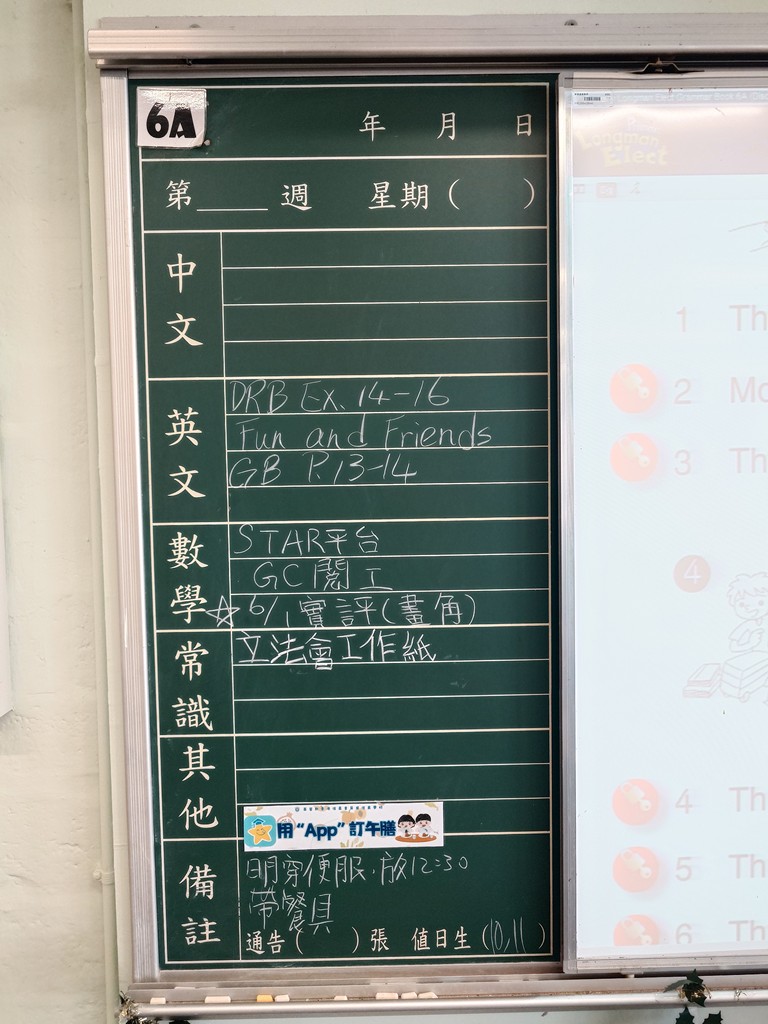 6A
年 月 日
第____週 星期( )
中文
英文
DRB Ex. 14-16
Fun and Friends
GB P.13-14
數學
STAR平台
GC閱工
☆6/1實評(畫角)
常識
立法會工作紙
其他
用“App”訂午膳
備註
明穿便服.放12:30
帶餐具
通告( )張 值日生(10,11)
Longman Elect
1 Th
2 Mo
3 Th
4
4 Th
5 Th
6 Th